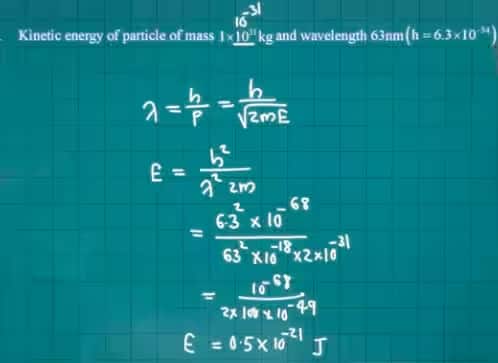 10⁻³¹
Kinetic energy of particle of mass 1×10³¹ kg and wavelength 63nm (h = 6.3×10⁻³⁴)
λ = h/p = h/√2mE
E = h²/λ² 2m
= 6.3² × 10⁻⁶⁸ / 63² × 10⁻¹⁸ × 2 × 10⁻³¹
= 10⁻⁶⁸ / 2 × 100 × 10⁻⁴⁹
E = 0.5 × 10⁻²¹ J